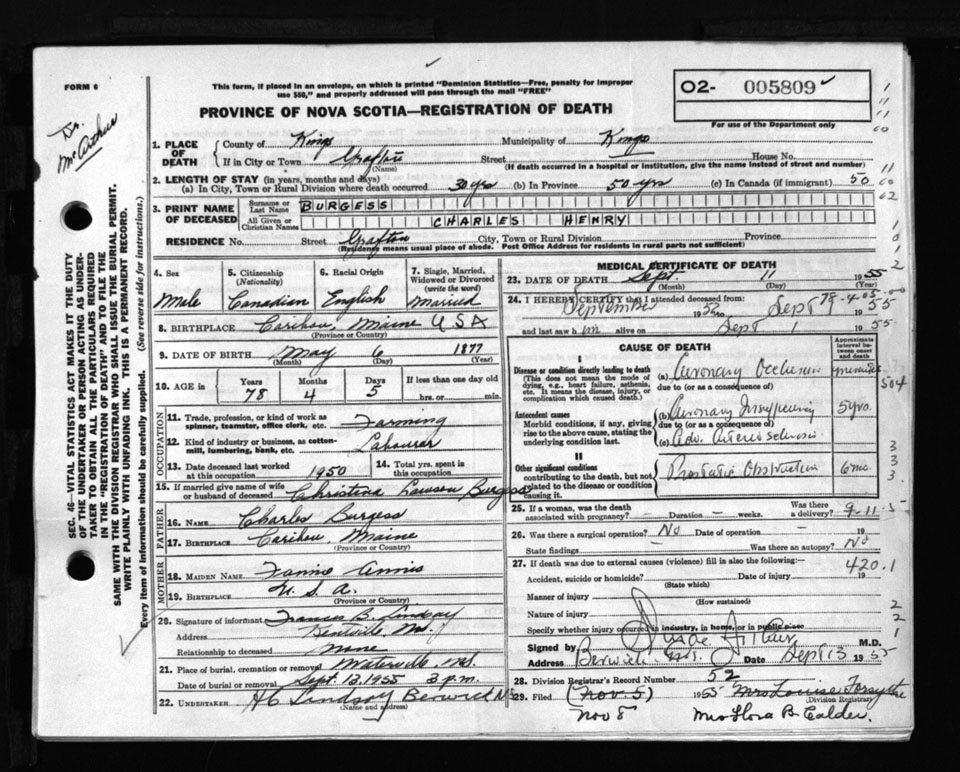 FORM 6
This form, if placed in an envelope, on which is printed "Dominion Statistics—Free, penalty for improper
use $50," and properly addressed will pass through the mail "FREE"
PROVINCE OF NOVA SCOTIA—REGISTRATION OF DEATH
O2- 005809
For use of the Department only
Dr.
McArthur
SEC. 46—VITAL STATISTICS ACT MAKES IT THE DUTY
OF THE UNDERTAKER OR PERSON ACTING AS UNDER-
TAKER TO OBTAIN ALL THE PARTICULARS REQUIRED
IN THE "REGISTRATION OF DEATH" AND TO FILE THE
SAME WITH THE DIVISION REGISTRAR WHO SHALL ISSUE THE BURIAL PERMIT.
WRITE PLAINLY WITH UNFADING INK. THIS IS A PERMANENT RECORD.
Every item of information should be carefully supplied. (See reverse side for instructions.)
1. PLACE OF DEATH
County of Kings Municipality of Kings
If in City or Town Grafton Street House No.
(Name) (If death occurred in a hospital or institution, give the name instead of street and number)
2. LENGTH OF STAY (in years, months and days)
(a) In City, Town or Rural Division where death occurred 30 yrs (b) In Province 50 yrs (c) In Canada (if immigrant) 50
3. PRINT NAME OF DECEASED
Surname or Last Name BURGESS
All Given or Christian Names CHARLES HENRY
RESIDENCE No. Street Grafton City, Town or Rural Division Province
(Residency means usual place of abode. Post Office Address for residents in rural parts not sufficient)
4. Sex 5. Citizenship (Nationality) 6. Racial Origin 7. Single, Married, Widowed or Divorced (write the word)
Male Canadian English Married
8. BIRTHPLACE Caribou, Maine USA
(Province or Country)
9. DATE OF BIRTH May 6 1877
(Month) (Day) (Year)
10. AGE in Years Months Days If less than one day old
78 4 5 hrs. or min.
OCCUPATION
11. Trade, profession, or kind of work as
spinner, teamster, office clerk, etc. Farming
12. Kind of industry or business, as cotton-
mill, lumbering, bank, etc. Labourer
13. Date deceased last worked
at this occupation 1950
14. Total yrs. spent in
this occupation
15. If married give name of wife
or husband of deceased Christina Lawson Burgess
FATHER
16. NAME Charles Burgess
17. BIRTHPLACE Caribou Maine
(Province or Country)
MOTHER
18. MAIDEN NAME Fannie Annis
19. BIRTHPLACE U.S.A.
(Province or Country)
20. Signature of informant Frances B. Lindsay
Address Kentville, N.S.
Relationship to deceased None
21. Place of burial, cremation or removal Waterville, N.S.
Date of burial or removal Sept. 13, 1955 3 p.m.
22. UNDERTAKER HC Lindsay Berwick NS
(Name and address)
MEDICAL CERTIFICATE OF DEATH
23. DATE OF DEATH Sept. 11 1955
(Month) (Day)
24. I HEREBY CERTIFY that I attended deceased from:
September 1952 to Sept 9 1955
and last saw him alive on Sept 1 1955
CAUSE OF DEATH
Approximate interval between onset and death
I
Disease or condition directly leading to death
(This does not mean the mode of
dying, e.g., heart failure, asthenia,
etc. It means the disease, injury, or
complication which caused death.)
(a) Coronary Occlusion minutes
due to (or as a consequence of)
Antecedent causes
Morbid conditions, if any, giving
rise to the above cause, stating the
underlying condition last.
(b) Coronary Insufficiency 5 yrs.
due to (or as a consequence of)
(c) Adv. Arteriosclerosis
II
Other significant conditions
contributing to the death, but not
related to the disease or condition
causing it.
Prostatic Obstruction 6 mo.
25. If a woman, was the death
associated with pregnancy? — Duration — weeks. Was there a delivery?
9-11-5
26. Was there a surgical operation? No Date of operation — 19
State findings — Was there an autopsy? No
27. If death was due to external causes (violence) fill in also the following:-
420.1
Accident, suicide or homicide? Date of injury 19
(State which)
Manner of injury
(How sustained)
Nature of injury
Specify whether injury occurred in industry, in home, or in public place
Signed by M.D.
Address Berwick N.S. Date Sept 13 1955
28. Division Registrar's Record Number 52
29. Filed (Nov. 5) 1955 Mrs Louise Forsythe
(Division Registrar)
Nov 8 Mrs Flora B. Calder.